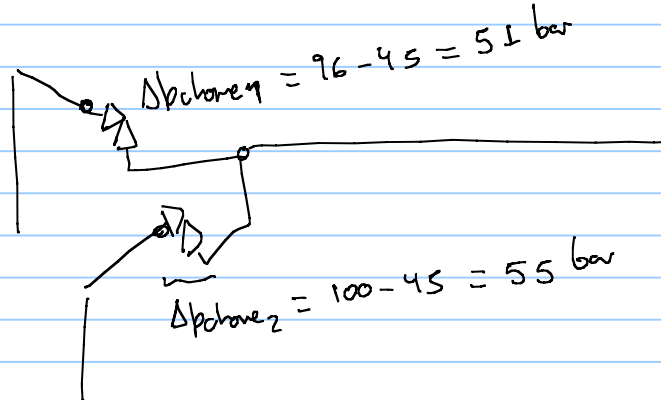 Δpchoke1 = 96 - 45 = 51 bar
Δpchoke2 = 100 - 45 = 55 bar